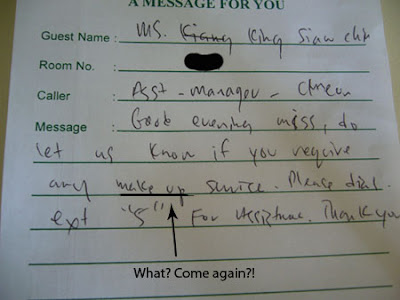 A MESSAGE FOR YOU
Guest Name : MS. Kiang King Siaw
Room No. :
Caller : Asst - manager -
Message : Good evening miss, do
let us know if you require
any make up service. Please dial
ext "5" For assistance. Thank you
What? Come again?!